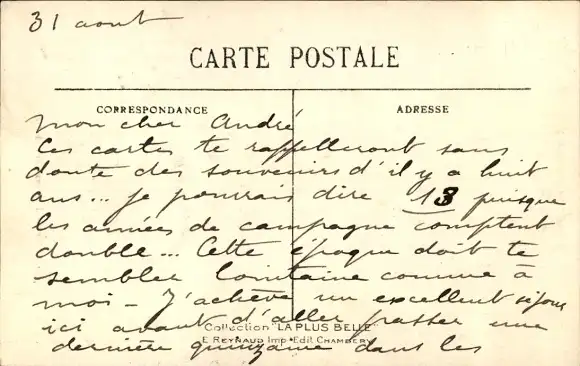 31 aout
CARTE POSTALE
CORRESPONDANCE
ADRESSE
Mon cher André
Ces cartes te rappelleront sans
doute des souvenirs d'il y a huit
ans... je pourrais dire 13 puisque
les années de campagne comptent
double... Cette époque doit te
sembler lointaine comme à
moi - J'achève un excellent séjour
ici avant d'aller passer une
Collection "LA PLUS BELLE"
E. REYNAUD Imp. Edit CHAMBERY
dernière quinzaine dans les